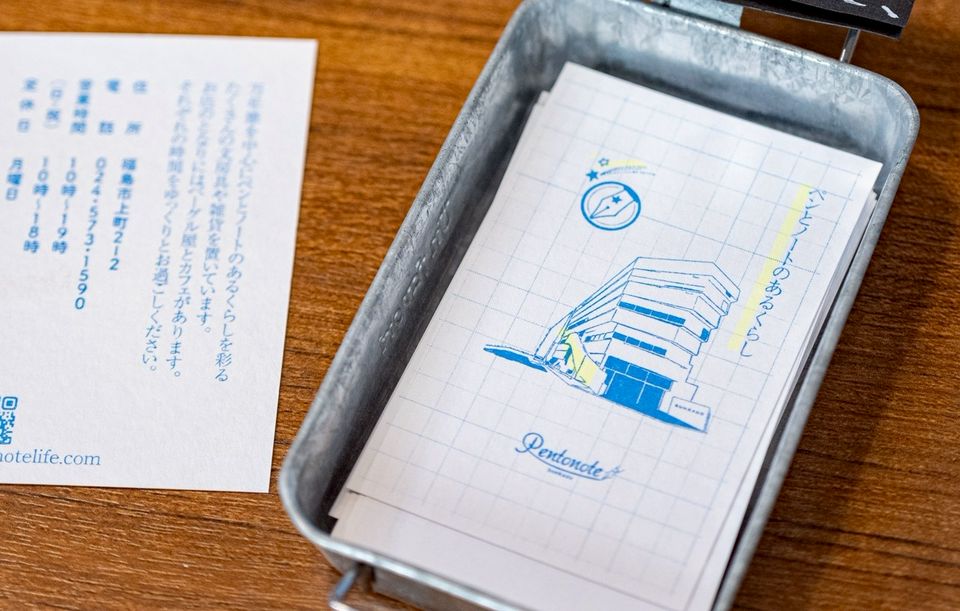 万年筆を中心にペンとノートのあるくらしを彩る
たくさんの文房具や雑貨を置いています。
お店のとなりにはベーグル屋とカフェがあります。
それぞれの時間をゆっくりとお過ごしください。
住所 福島市上町2-12
電話 024-573-1590
営業時間 10時〜19時
（日・祝） 10時〜18時
定休日 月曜日
notelife.com
ペンとノートのあるくらし
Pentonote